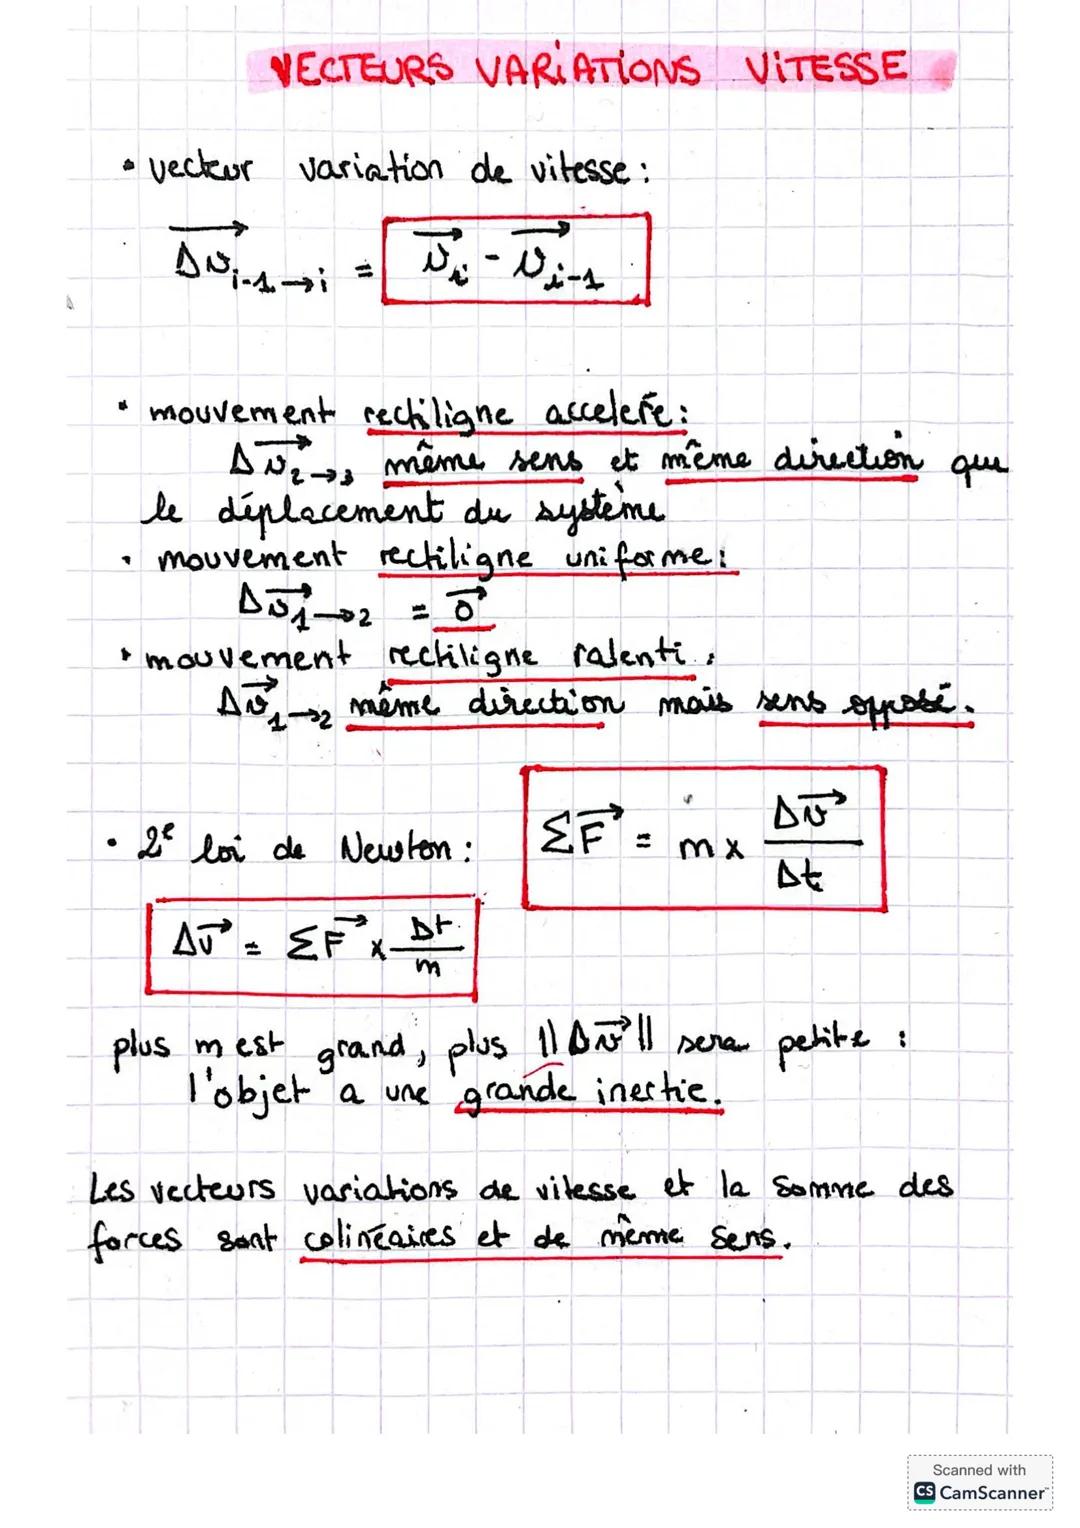 VECTEURS VARIATIONS VITESSE
• vecteur variation de vitesse :
Δv⃗ i-1→i = v⃗i - v⃗i-1
• mouvement rectiligne acceleré :
Δv⃗ 2→3 même sens et même direction que
le déplacement du système
• mouvement rectiligne uniforme :
Δv⃗ 1→2 = 0⃗
• mouvement rectiligne ralenti :
Δv⃗ 1→2 même direction mais sens opposé.
• 2e loi de Newton : ΣF⃗ = m x Δv⃗/Δt
Δv⃗ = ΣF⃗ x Δt/m
plus m est grand, plus ||Δv⃗|| sera petite :
l'objet a une grande inertie.
Les vecteurs variations de vitesse et la somme des
forces sont colinéaires et de même sens.
Scanned with
CS CamScanner